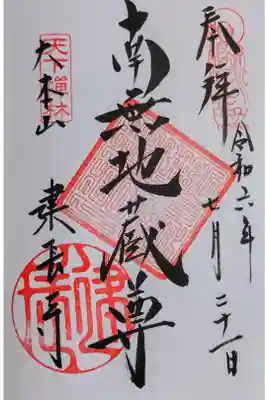 奉拝
令和六年七月二十一日
南無地蔵尊
天下禅林
大本山
建長寺